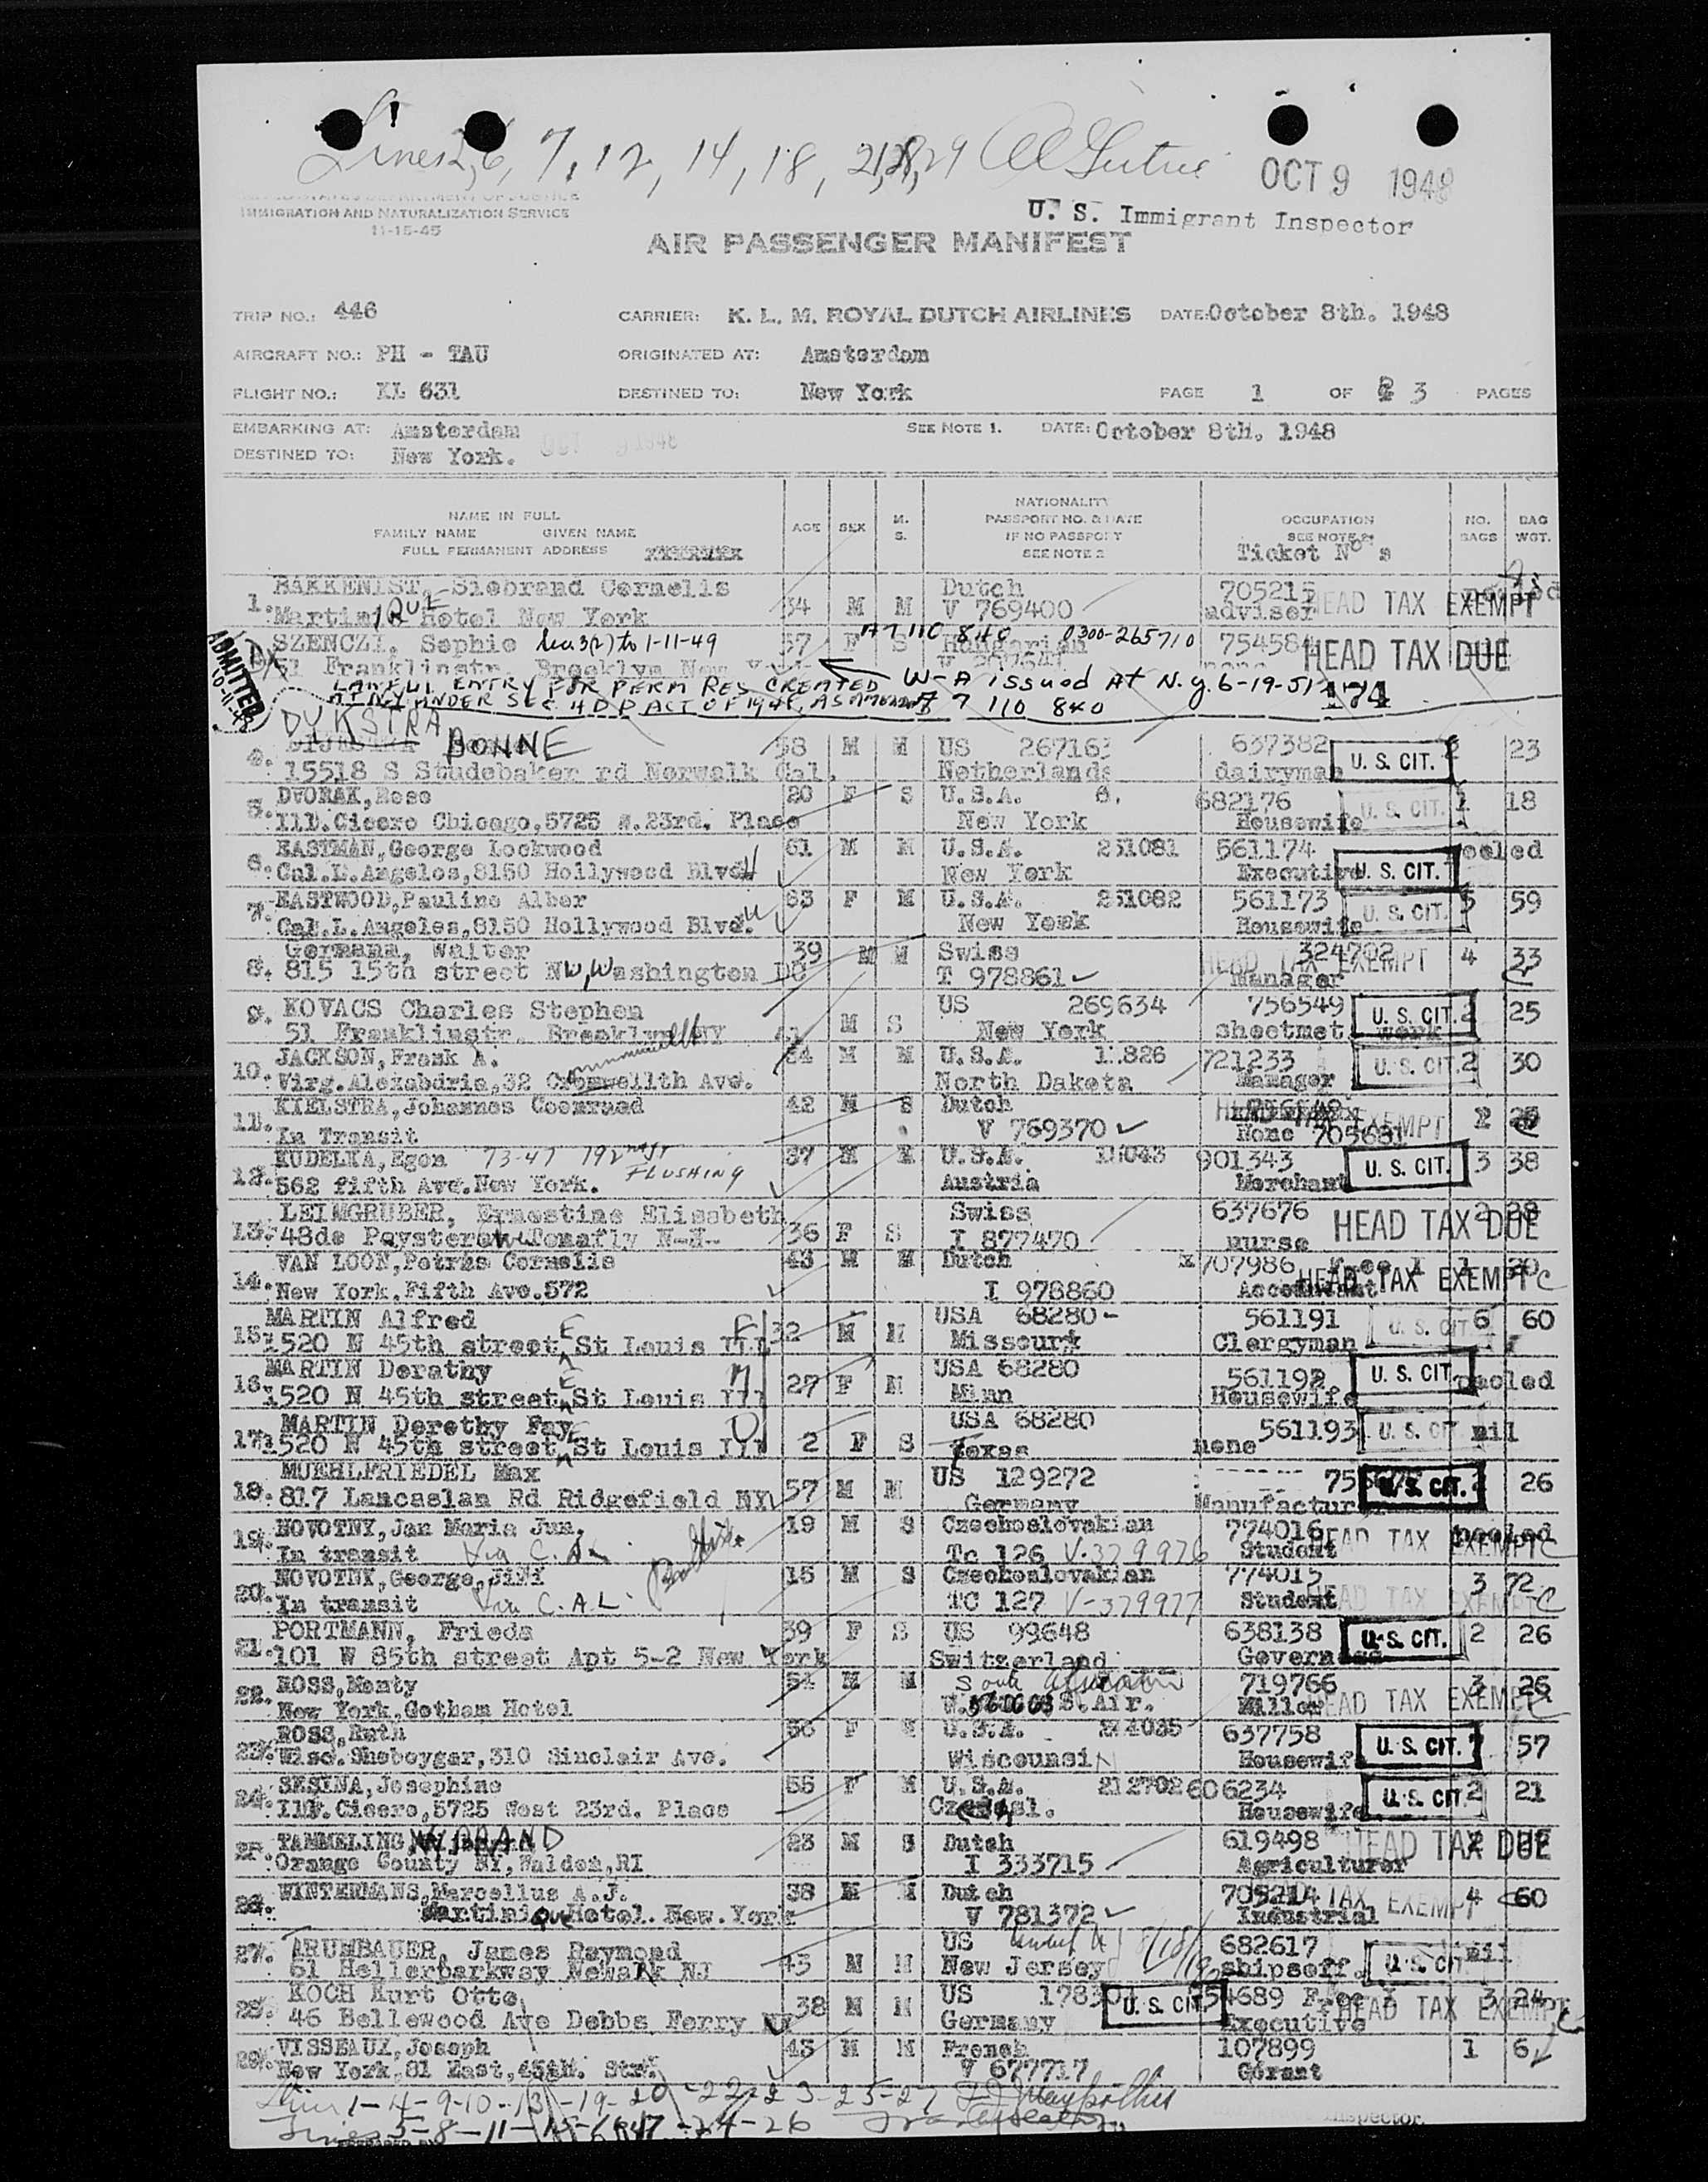 Lines 2, 6, 7, 12, 14, 18, 21, 28, 29
OCT 9 1948
U. S. Immigrant Inspector
IMMIGRATION AND NATURALIZATION SERVICE
11-15-45
AIR PASSENGER MANIFEST
TRIP NO.: 446 CARRIER: K. L. M. ROYAL DUTCH AIRLINES DATE: October 8th. 1948
AIRCRAFT NO.: PH - TAU ORIGINATED AT: Amsterdam
FLIGHT NO.: KL 631 DESTINED TO: New York PAGE 1 OF 3 PAGES
EMBARKING AT: Amsterdam SEE NOTE 1. DATE: October 8th. 1948
DESTINED TO: New York.
NAME IN FULL
FAMILY NAME GIVEN NAME
FULL PERMANENT ADDRESS
AGE SEX M. S.
NATIONALITY
PASSPORT NO. & DATE
IF NO PASSPORT
SEE NOTE 2
OCCUPATION
SEE NOTE 2
Ticket Nos
NO. BAGS BAG WGT.
1. BAKKENIST, Siebrand Cornelis 34 M M Dutch 705215
MartiniQUE Hotel New York V 769400 adviser HEAD TAX EXEMPT
SZENCZI, Sophie Sec. 3(2) to 1-11-49 57 F S Hungarian 0300-265710 754584 HEAD TAX DUE
51 Franklinstr. Brooklyn New York none
ADMITTED
LAWFUL ENTRY FOR PERM RES CREATED W-A issued At N.y. 6-19-51 174
UNDER SEC 4 D P ACT OF 1948, AS AMENDED A 7 110 840
DYKSTRA BONNE 58 M M US 26716 637382 U. S. CIT. 23
4. 15518 S Studebaker rd Norwalk Cal. Netherlands dairyman
5. DVORAK, Rose 20 F S U.S.A. 682176 U. S. CIT. 1 18
Ill. Cicero Chicago, 5725 W. 23rd. Place New York Housewife
6. EASTMAN, George Lockwood 61 M M U.S.A. 251081 561174 pooled
Cal. L. Angelos, 8150 Hollywood Blvd. New York Executive U. S. CIT.
7. EASTWOOD, Pauline Alber 63 F M U.S.A. 251082 561173 5 59
Cal. L. Angeles, 8150 Hollywood Blvd. New York Housewife U. S. CIT.
8. Germann, Walter 39 M M Swiss 324702 4 33
815 15th street NW, Washington DC T 978861 Manager HEAD TAX EXEMPT
9. KOVACS Charles Stephen 41 M S US 269634 756549 U. S. CIT. 2 25
51 Franklinstr. Brooklyn NY New York sheetmet work
10. JACKSON, Frank A. 34 M M U.S.A. 721233 U. S. CIT. 2 30
Virg. Alexabdria, 32 Ave. North Dakota Manager
11. KIELSTRA, Johannes Coenraad 42 M S Dutch HEAD TAX EXEMPT
In Transit V 769370 None 705681
12. KUDELKA, Egon 73-47 192nd St FLUSHING 37 M M U.S.A. 901343 U. S. CIT. 3 38
562 fifth Ave. New York. Austria Merchant
13. LEIMGRUBER, Ernestine Elisabeth 36 F S Swiss 637676 HEAD TAX DUE
48de Peysterave Tenafly N-J- I 877470 nurse
14. VAN LOON, Petrus Cornelis 43 M M Dutch 707986
New York. Fifth Ave. 572 I 978860 Accountant HEAD TAX EXEMPT
15. MARTIN Alfred 32 M M USA 68280 561191 U. S. CIT. 6 60
1520 N 45th street E St Louis Ill Missouri Clergyman
16. MARTIN Dorathy 27 F M USA 68280 561192 U. S. CIT. pooled
1520 N 45th street E St Louis Ill Minn Housewife
17. MARTIN Dorothy Fay 2 F S USA 68280 561193 U. S. CIT. nil
1520 N 45th street E St Louis Ill Texas none
18. MUEHLFRIEDEL Max 57 M M US 129272 U. S. CIT. 26
817 Lancaslan Rd Ridgefield NY Germany Manufactur
19. NOVOTNY, Jan Maria Jun. 19 M S Czechoslovakian 774016 pooled
In transit Via C.A.L. Tc 126 V-379976 Student HEAD TAX EXEMPT
20. NOVOTNY, George, JiRi 15 M S Czechoslovakian 774015 3 72
In transit Via C.A.L. TC 127 V-379977 Student HEAD TAX EXEMPT
21. PORTMANN, Frieda 39 F S US 99648 638138 U. S. CIT. 2 26
101 W 85th street Apt 5-2 New York Switzerland Governess
22. ROSS, Monty 54 M M South African 719766 3 26
New York. Gotham Hotel Miller HEAD TAX EXEMPT
23. ROSS, Ruth F M U.S.A. 637758 U. S. CIT. 57
Wisc. Sheboygar, 310 Sinclair Ave. WisconnsiN Housewife
24. SESINA, Josephine 55 F M U.S.A. 212702 606234 U. S. CIT. 2 21
Ill. Cicero, 5725 West 23rd. Place Czechsl. Housewife
25. TAMMELING, WYBRAND 23 M S Dutch 619498 HEAD TAX DUE
Orange County NY, Walden, RI I 333715 Agriculturer
26. WINTERMANS, Marcellus A.J. 38 M M Dutch 705214 4 60
MartiniQUE Hotel. New. York V 781372 Industrial HEAD TAX EXEMPT
27. ARUMBAUER, James Raymond 43 M M US 682617 nil
51 Hellerparkway Newark NJ New Jersey shipsoff. U. S. CIT.
28. KOCH Kurt Otto 38 M M US U. S. CIT. 3 24
46 Bellewood Ave Dobbs Ferry NY Germany Executive HEAD TAX EXEMPT
29. VISSEAUX, Joseph 43 M M French 107899 1 6
New York, 81 East, 45th. Str. V 677717 Gérant
Lines 1-4-9-10-13-19-20-22-23-25-27
Lines 5-8-11-15-16-17-24-26
Inspector.